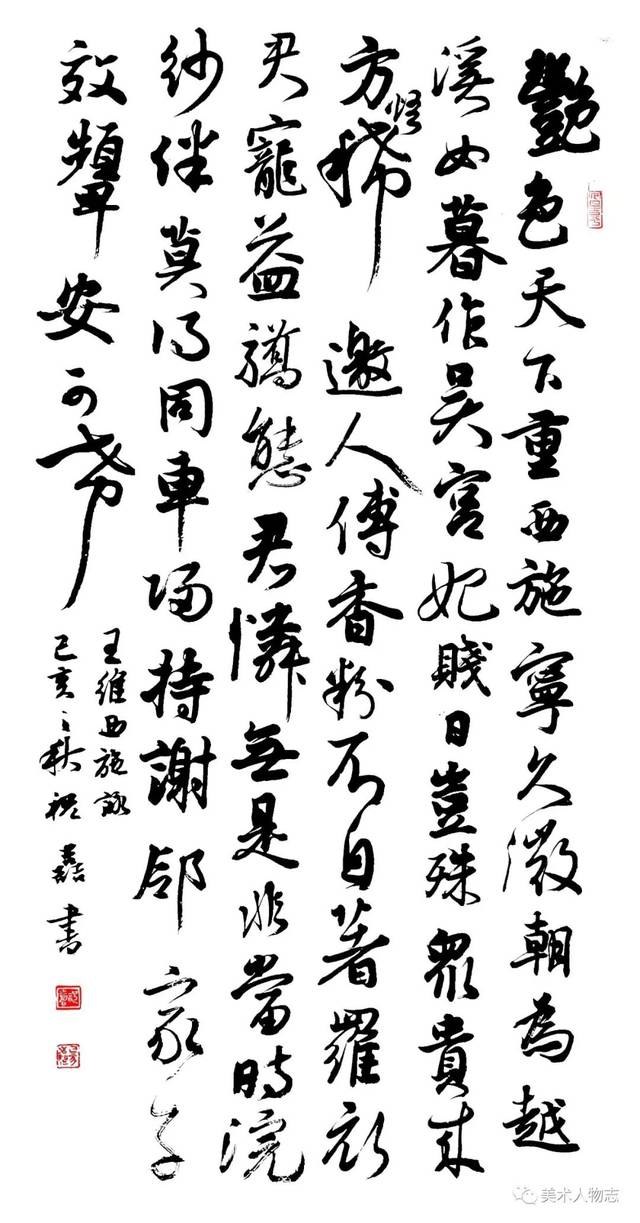 艷色天下重西施寧久微朝為越
溪女暮作吳宮妃賤日豈殊眾貴來
方悟稀邀人傅香粉不自著羅衣
君寵益驕態君憐無是非當時浣
紗伴莫得同車歸持謝邻家子
效顰安可希
王維西施詠
己亥之秋書
美术人物志